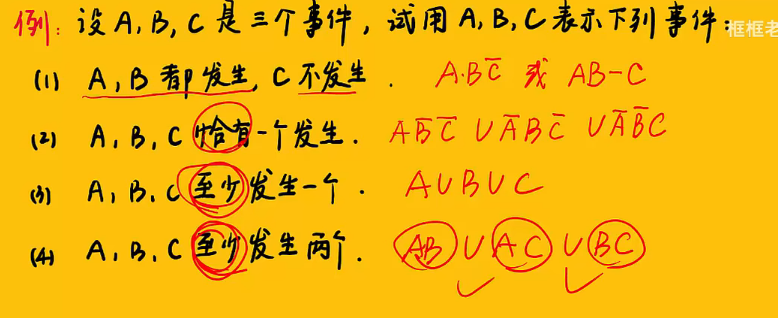 例: 设A, B, C是三个事件, 试用A, B, C表示下列事件:
框框老
(1) A, B都发生, C不发生. A·BC̅ 或 AB-C
(2) A, B, C恰有一个发生. AB̅C̅ ∪ A̅BC̅ ∪ A̅B̅C
(3) A, B, C至少发生一个. A∪B∪C
(4) A, B, C至少发生两个. AB∪AC∪BC